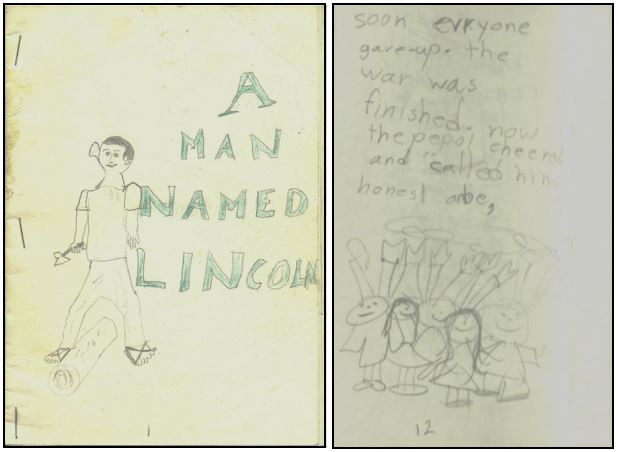 A
MAN
NAMED
LINCOLN
soon evryone
gave-up. the
war was
finished. now
the pepol cheered
and called him
honest abe,
12